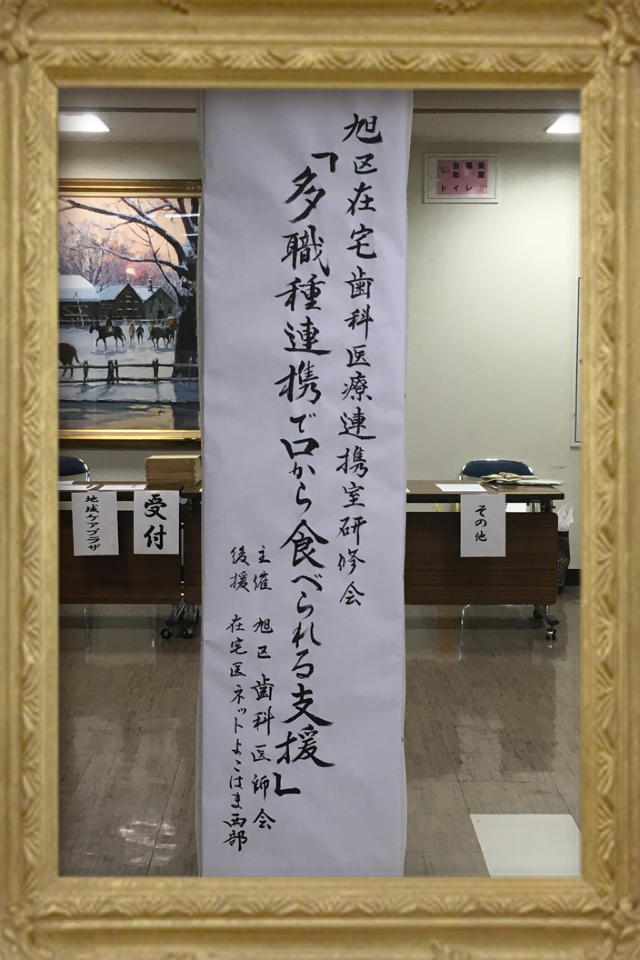 旭区在宅歯科医療連携室研修会
「多職種連携で口から食べられる支援」
主催 旭区歯科医師会
後援 在宅医ネットよこはま西部
受付
地域ケアプラザ
その他
トイレ